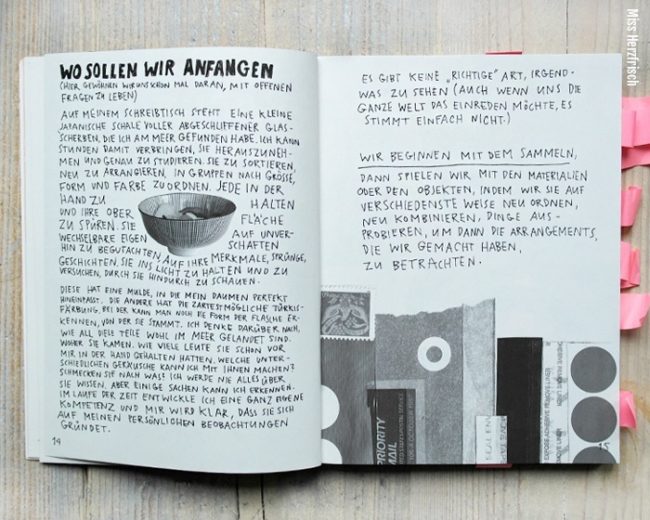 WO SOLLEN WIR ANFANGEN
(HIER GEWÖHNEN WIR UNS SCHON MAL DARAN, MIT OFFENEN
FRAGEN ZU LEBEN)
AUF MEINEM SCHREIBTISCH STEHT EINE KLEINE
JAPANISCHE SCHALE VOLLER ABGESCHLIFFENER GLAS-
SCHERBEN, DIE ICH AM MEER GEFUNDEN HABE. ICH KANN
STUNDEN DAMIT VERBRINGEN, SIE HERAUSZUNEH-
MEN UND GENAU ZU STUDIEREN. SIE ZU SORTIEREN,
NEU ZU ARRANGIEREN, IN GRUPPEN NACH GRÖSSE,
FORM UND FARBE ZU ORDNEN. JEDE IN DER
HAND ZU HALTEN
UND IHRE OBER FLÄCHE
ZU SPÜREN. SIE AUF UNVER-
WECHSELBARE EIGEN SCHAFTEN
HIN ZU BEGUTACHTEN AUF IHRE MERKMALE, SPRÜNGE,
GESCHICHTEN. SIE INS LICHT ZU HALTEN UND ZU
VERSUCHEN, DURCH SIE HINDURCH ZU SCHAUEN.
DIESE HAT EINE MULDE, IN DIE MEIN DAUMEN PERFEKT
HINEINPASST. DIE ANDERE HAT DIE ZARTESTMÖGLICHE TÜRKIS-
FÄRBUNG, BEI DER KANN MAN NOCH DIE FORM DER FLASCHE ER-
KENNEN, VON DER SIE STAMMT. ICH DENKE DARÜBER NACH,
WIE ALL DIESE TEILE WOHL IM MEER GELANDET SIND.
WOHER SIE KAMEN. WIE VIELE LEUTE SIE SCHON VOR
MIR IN DER HAND GEHALTEN HATTEN. WELCHE UNTER-
SCHIEDLICHEN GERÄUSCHE KANN ICH MIT IHNEN MACHEN?
SCHMECKEN SIE NACH WAS? ICH WERDE NIE ALLES ÜBER
SIE WISSEN. ABER EINIGE SACHEN KANN ICH ERKENNEN.
IM LAUFE DER ZEIT ENTWICKLE ICH EINE GANZ EIGENE
KOMPETENZ UND MIR WIRD KLAR, DASS SIE SICH
AUF MEINEN PERSÖNLICHEN BEOBACHTUNGEN
GRÜNDET.
14
ES GIBT KEINE „RICHTIGE" ART, IRGEND-
WAS ZU SEHEN (AUCH WENN UNS DIE
GANZE WELT DAS EINREDEN MÖCHTE, ES
STIMMT EINFACH NICHT.)
WIR BEGINNEN MIT DEM SAMMELN,
DANN SPIELEN WIR MIT DEN MATERIALIEN
ODER DEN OBJEKTEN, INDEM WIR SIE AUF
VERSCHIEDENSTE WEISE NEU ORDNEN,
NEU KOMBINIEREN, DINGE AUS-
PROBIEREN, UM DANN DIE ARRANGEMENTS,
DIE WIR GEMACHT HABEN,
ZU BETRACHTEN.
PRIORITY
MAIL
Miss Herzfrisch